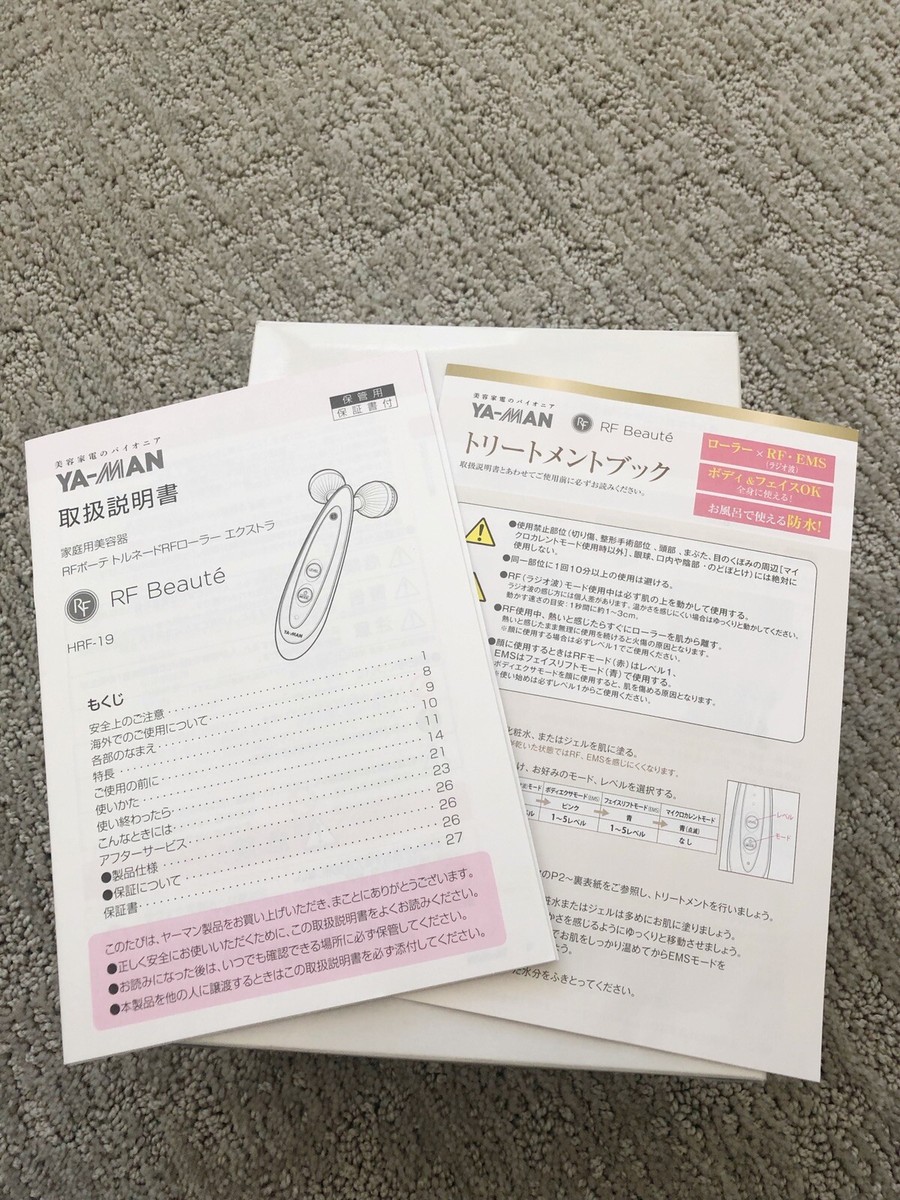 保管用
保証書付
美容家電のパイオニア
YA-MAN
取扱説明書
家庭用美容器
RFボーテ トルネードRFローラー エクストラ
RF RF Beauté
HRF-19
YA-MAN
もくじ
安全上のご注意 1
海外でのご使用について 8
各部のなまえ 9
特長 10
ご使用の前に 11
使いかた 14
使い終わったら 21
こんなときには 23
アフターサービス 26
●製品仕様 26
●保証について 26
保証書 27
このたびは、ヤーマン製品をお買い上げいただき、まことにありがとうございます。
●正しく安全にお使いいただくために、この取扱説明書をよくお読みください。
●お読みになった後は、いつでも確認できる場所に必ず保管してください。
●本製品を他の人に譲渡するときはこの取扱説明書を必ず添付してください。
美容家電のパイオニア
YA-MAN RF RF Beauté
トリートメントブック
取扱説明書とあわせてご使用前に必ずお読みください。
ローラー×RF・EMS
(ラジオ波)
ボディ&フェイスOK
全身に使える!
お風呂で使える防水!
●使用禁止部位(切り傷、整形手術部位、頭部、まぶた、目のくぼみの周辺[マイ
クロカレントモード使用時以外]、眼球、口内や陰部・のどぼとけ)には絶対に
使用しない。
●同一部位に1回10分以上の使用は避ける。
●RF(ラジオ波)モード使用中は必ず肌の上を動かして使用する。
ラジオ波の感じ方には個人差があります。温かさを感じにくい場合はゆっくりと動かしてください。
動かす速さの目安:1秒間に約1~3cm。
●RF使用中、熱いと感じたらすぐにローラーを肌から離す。
熱いと感じたまま無理に使用を続けると火傷の原因となります。
※顔に使用する場合は必ずレベル1でご使用ください。
●顔に使用するときはRFモード(赤)はレベル1、
EMSはフェイスリフトモード(青)で使用する。
ボディエクサモードを顔に使用すると、肌を傷める原因となります。
※使い始めは必ずレベル1からご使用ください。
化粧水、またはジェルを肌に塗る。
乾いた状態ではRF、EMSを感じにくくなります。
け、お好みのモード、レベルを選択する。
モード ボディエクサモード(EMS) フェイスリフトモード(EMS) マイクロカレントモード
ピンク 青 青(点滅)
1~5レベル 1~5レベル なし
レベル
モード
のP2~裏表紙をご参照し、トリートメントを行いましょう。
粧水またはジェルは多めにお肌に塗りましょう。
かさを感じるようにゆっくりと移動させましょう。
でお肌をしっかり温めてからEMSモードを
う。
た水分をふきとってください。